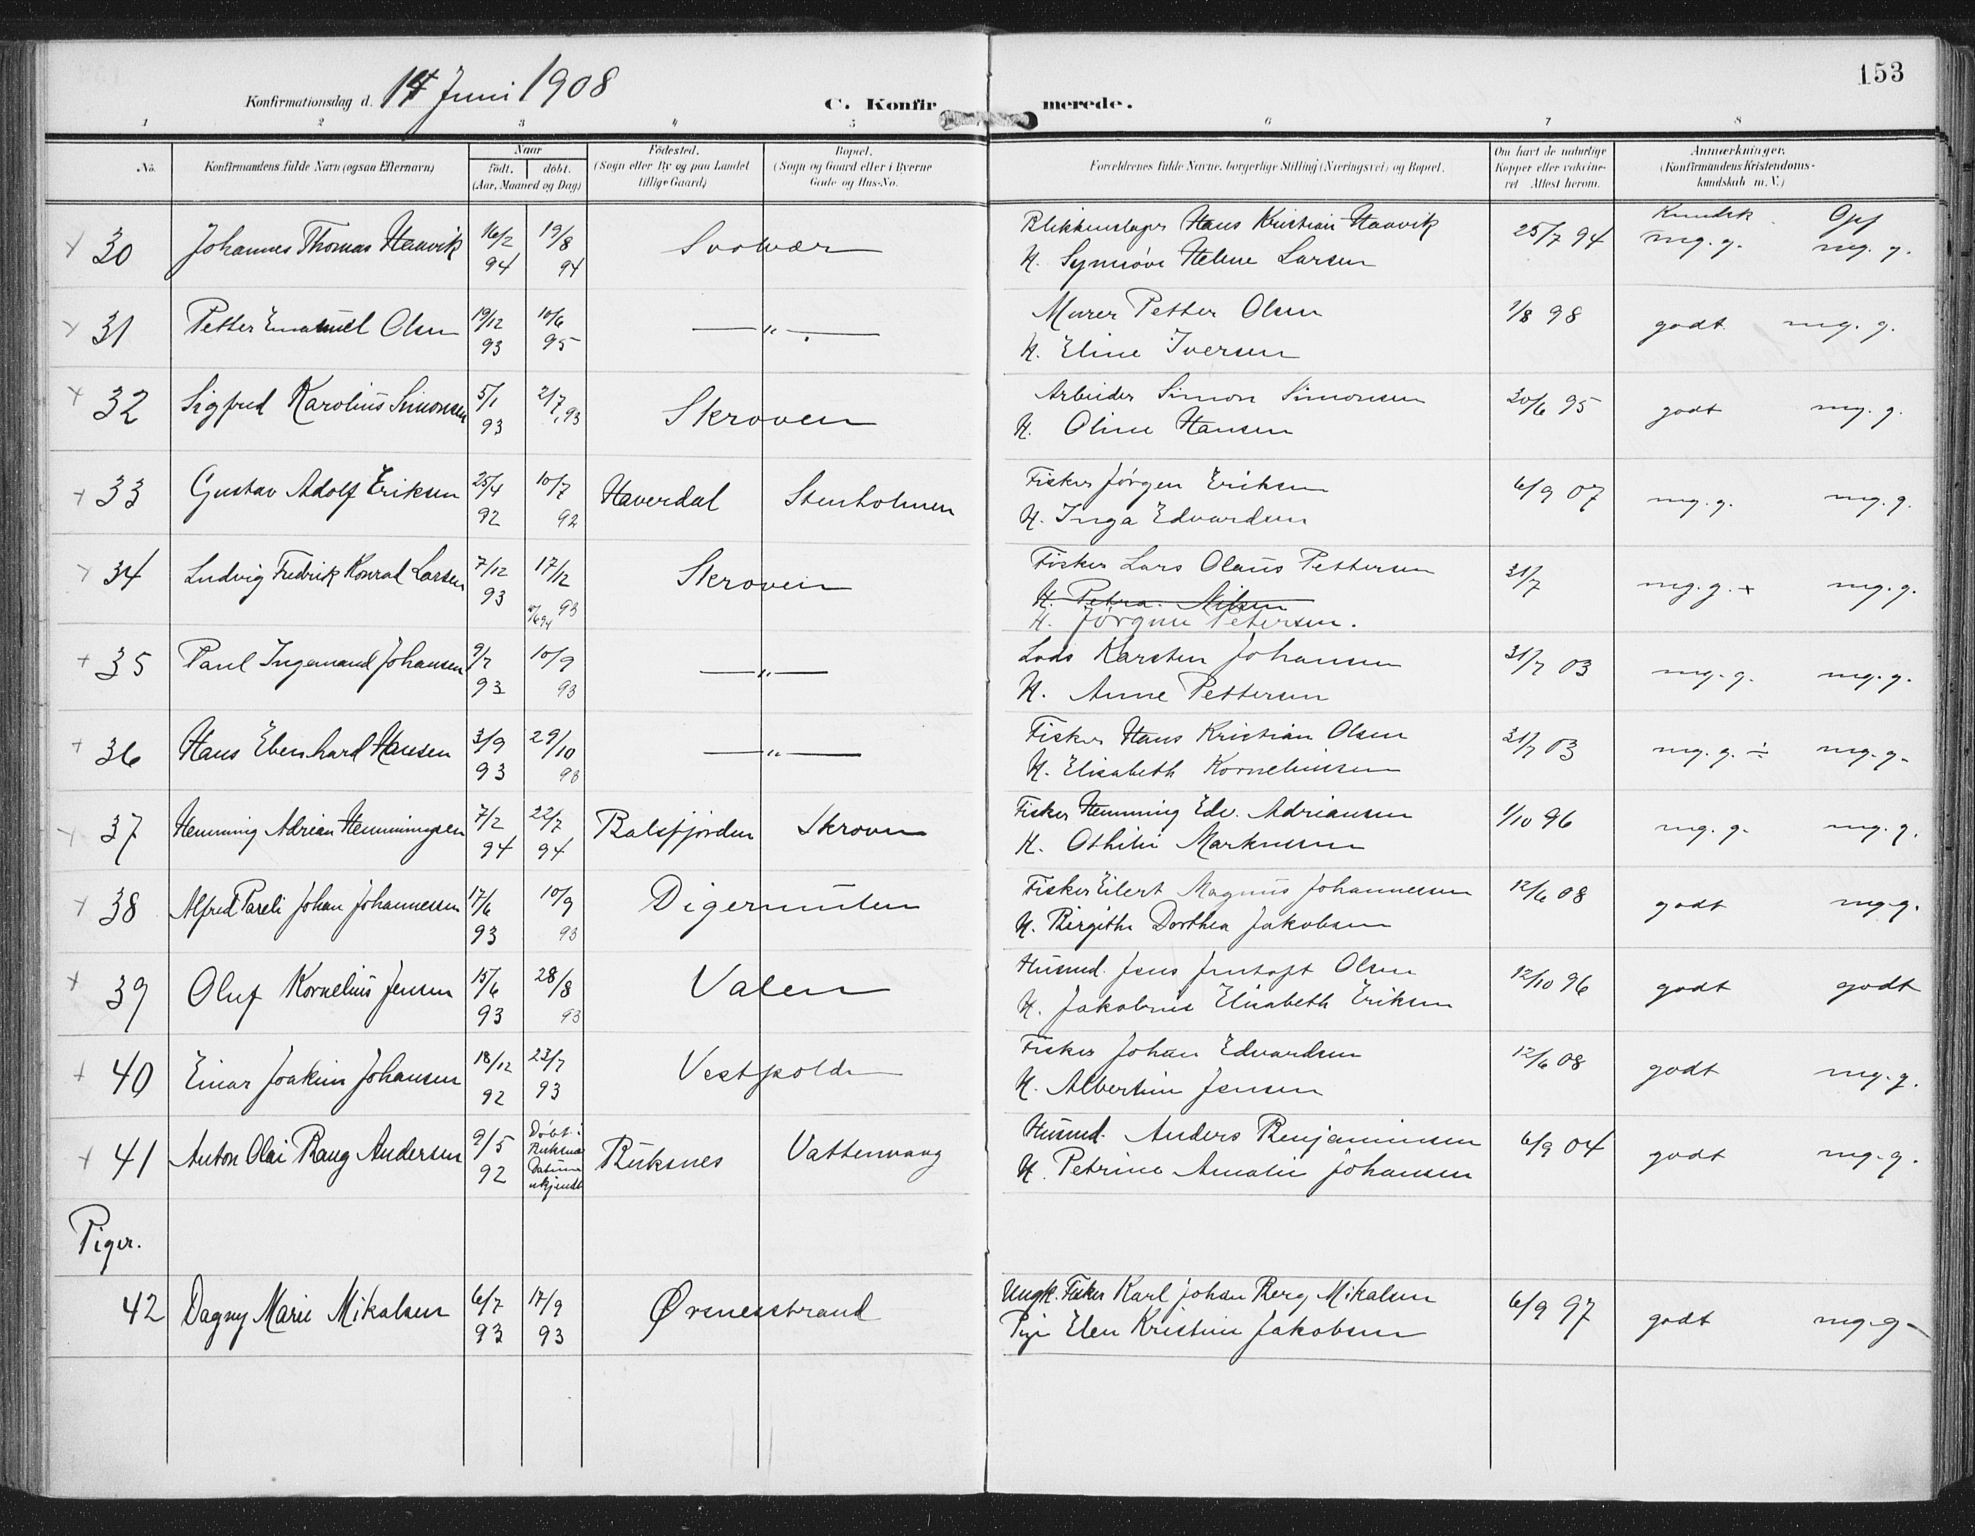 153
Konfirmationsdag d. 14 Juni 1908 C. Konfirmerede.
1 2 3 4 5 6 7 8
No. Konfirmandens fulde Navn (ogsaa Efternavn) Naar født. døbt. (Aar, Maaned og Dag) Fødested. (Sogn eller By og paa Landet tillige Gaard) Bopæl. (Sogn og Gaard eller i Byerne Gade og Hus-No. Forældrenes fulde Navne, borgerlige Stilling (Næringsvei) og Bopæl. Om havt de naturlige Kopper eller vakcineret. Attest herom. Anmærkninger. (Konfirmandens Kristendomskundskab m. V.)
Kundsk. Opf
30 Johannes Thomas Haavik 16/2 94 19/8 94 Svolvær Blikkenslager Hans Kristian Haavik 25/7 94 mg. g. mg. g.
H. Synnöve Helene Larsen
31 Petter Emanuel Olsen 19/12 93 10/6 95 —„— Murer Petter Olsen /8 98 godt mg. g.
H. Eline Iversen
32 Sigfred Karolius Simonsen 5/1 93 2/7 93 Skroven Arbeider Simon Simonsen 30/6 95 godt mg. g.
H. Oline Hansen
33 Gustav Adolf Eriksen 25/4 92 10/7 92 Haverdal Stenholmen Fisker Jörgen Eriksen 6/9 07 mg. g. mg. g.
H. Inga Edvardsen
34 Ludvig Fredrik Konrad Larsen 7/12 93 17/12 93 Skroven Fisker Lars Olaus Pettersen 31/7 mg. g. + mg. g.
H. Petra Nilsen
H. Jörgine Petersen.
35 Paul Ingemand Johansen 9/7 93 10/9 93 —„— Lods Karsten Johansen 31/7 03 mg. g. mg. g.
H. Anne Pettersen
36 Hans Ebenhard Hansen 3/9 93 29/10 93 —„— Fisker Hans Kristian Olsen 31/7 03 mg. g. ÷ mg. g.
H. Elisabeth Korneliussen
37 Hemming Adrian Hemmingsen 7/2 94 22/7 94 Balsfjorden Skroven Fisker Hemming Edv. Adriansen 1/10 96 mg. g. mg. g.
H. Othilie Markussen
38 Alfred Pareli Johan Johannessen 17/6 93 10/9 93 Digermulen Fisker Eilert Magnus Johannessen 12/6 08 godt mg. g.
H. Birgithe Dorthea Jakobsen
39 Oluf Kornelius Jensen 15/6 93 28/8 93 Valen Husmd. Jens Jentoft Olsen 12/10 96 godt godt
H. Jakobine Elisabeth Eriksen
40 Einar Joakim Johansen 18/12 92 23/7 93 Vestpolden Fisker Johan Edvardsen 12/6 08 godt mg. g.
H. Albertine Jensen
41 Anton Olai Bang Andersen 9/5 92 Döbt i Buksnæs Datum ukjendt Buksnes Vattenvaag Husmd. Anders Benjaminsen 6/9 04 godt mg. g.
H. Petrine Amalie Johansen
Piger.
42 Dagny Marie Mikalsen 6/7 93 17/9 93 Ørsnesstrand Ungk. Fisker Karl Johan Berg Mikalsen 6/9 97 godt mg. g.
Pige Elen Kristine Jakobsen